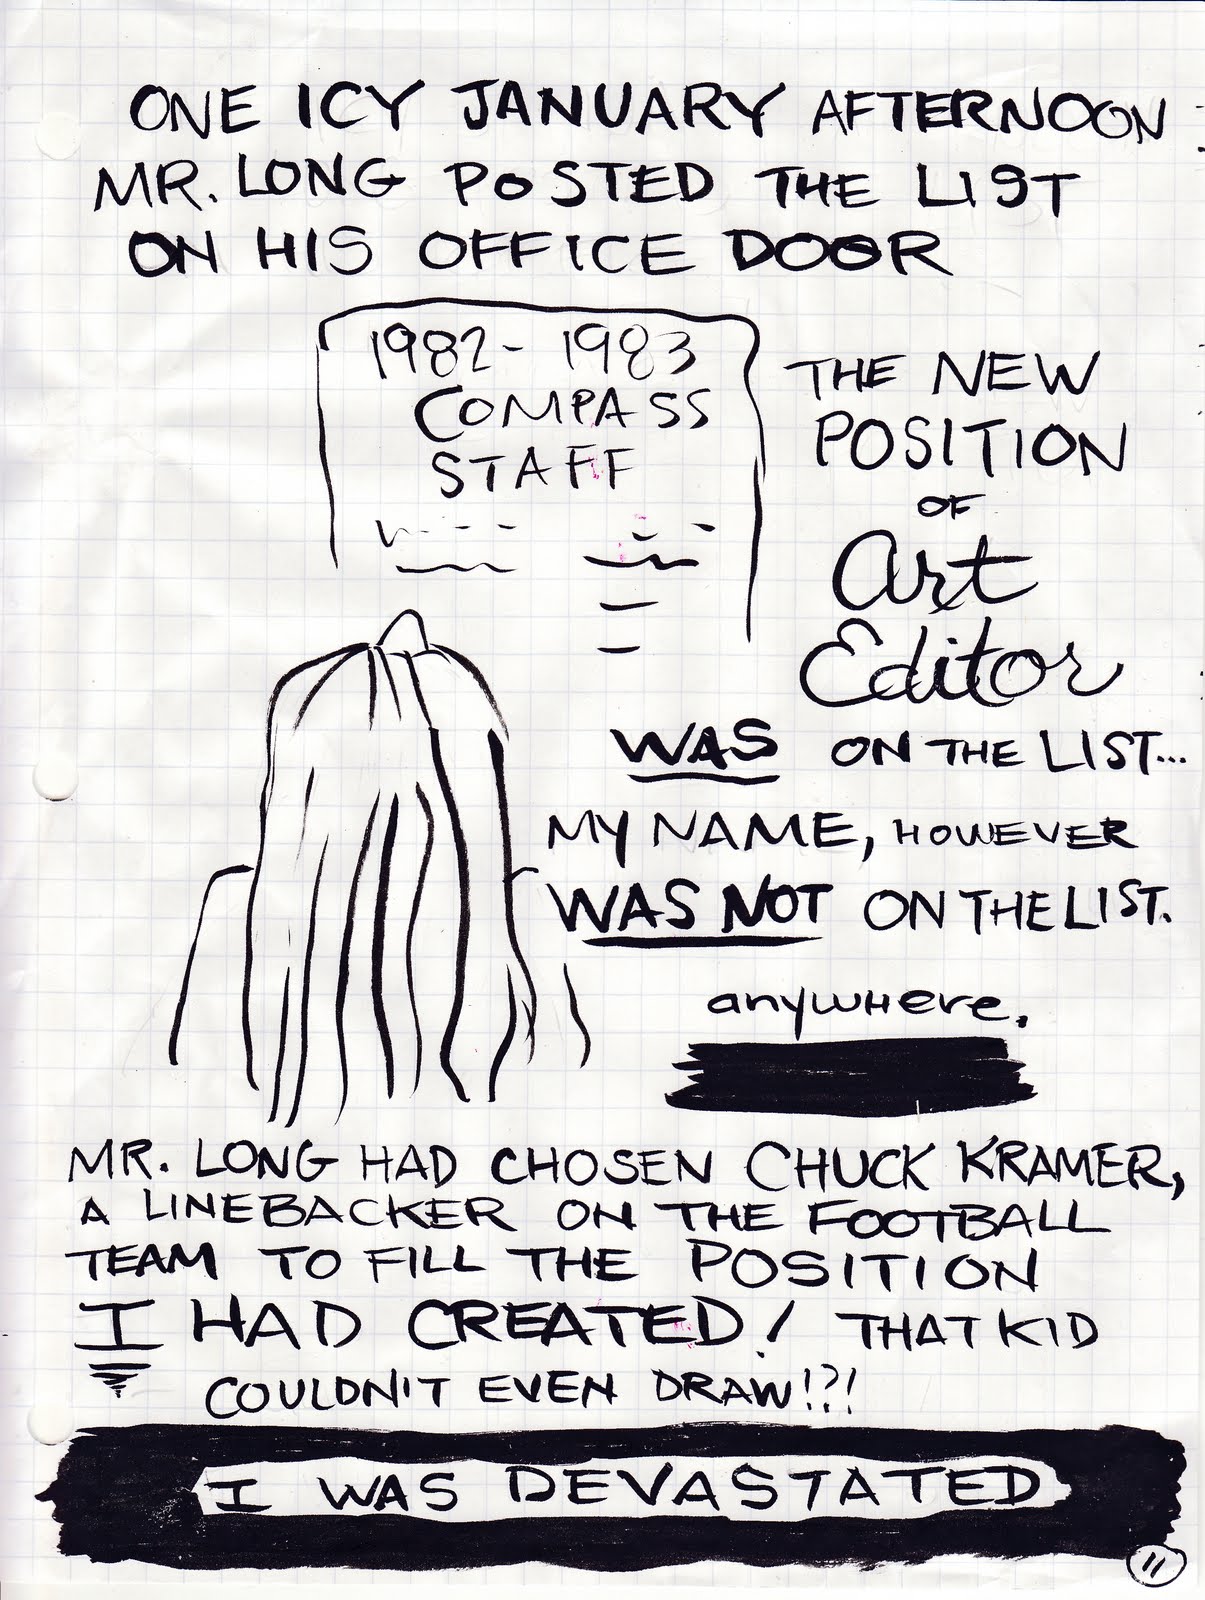 ONE ICY JANUARY AFTERNOON
MR. LONG POSTED THE LIST
ON HIS OFFICE DOOR
1982-1983
COMPASS
STAFF
THE NEW
POSITION
OF
Art
Editor
WAS ON THE LIST...
MY NAME, HOWEVER
WAS NOT ON THE LIST.
anywhere.
MR. LONG HAD CHOSEN CHUCK KRAMER,
A LINEBACKER ON THE FOOTBALL
TEAM TO FILL THE POSITION
I HAD CREATED! THAT KID
COULDN'T EVEN DRAW!?!
I WAS DEVASTATED
11